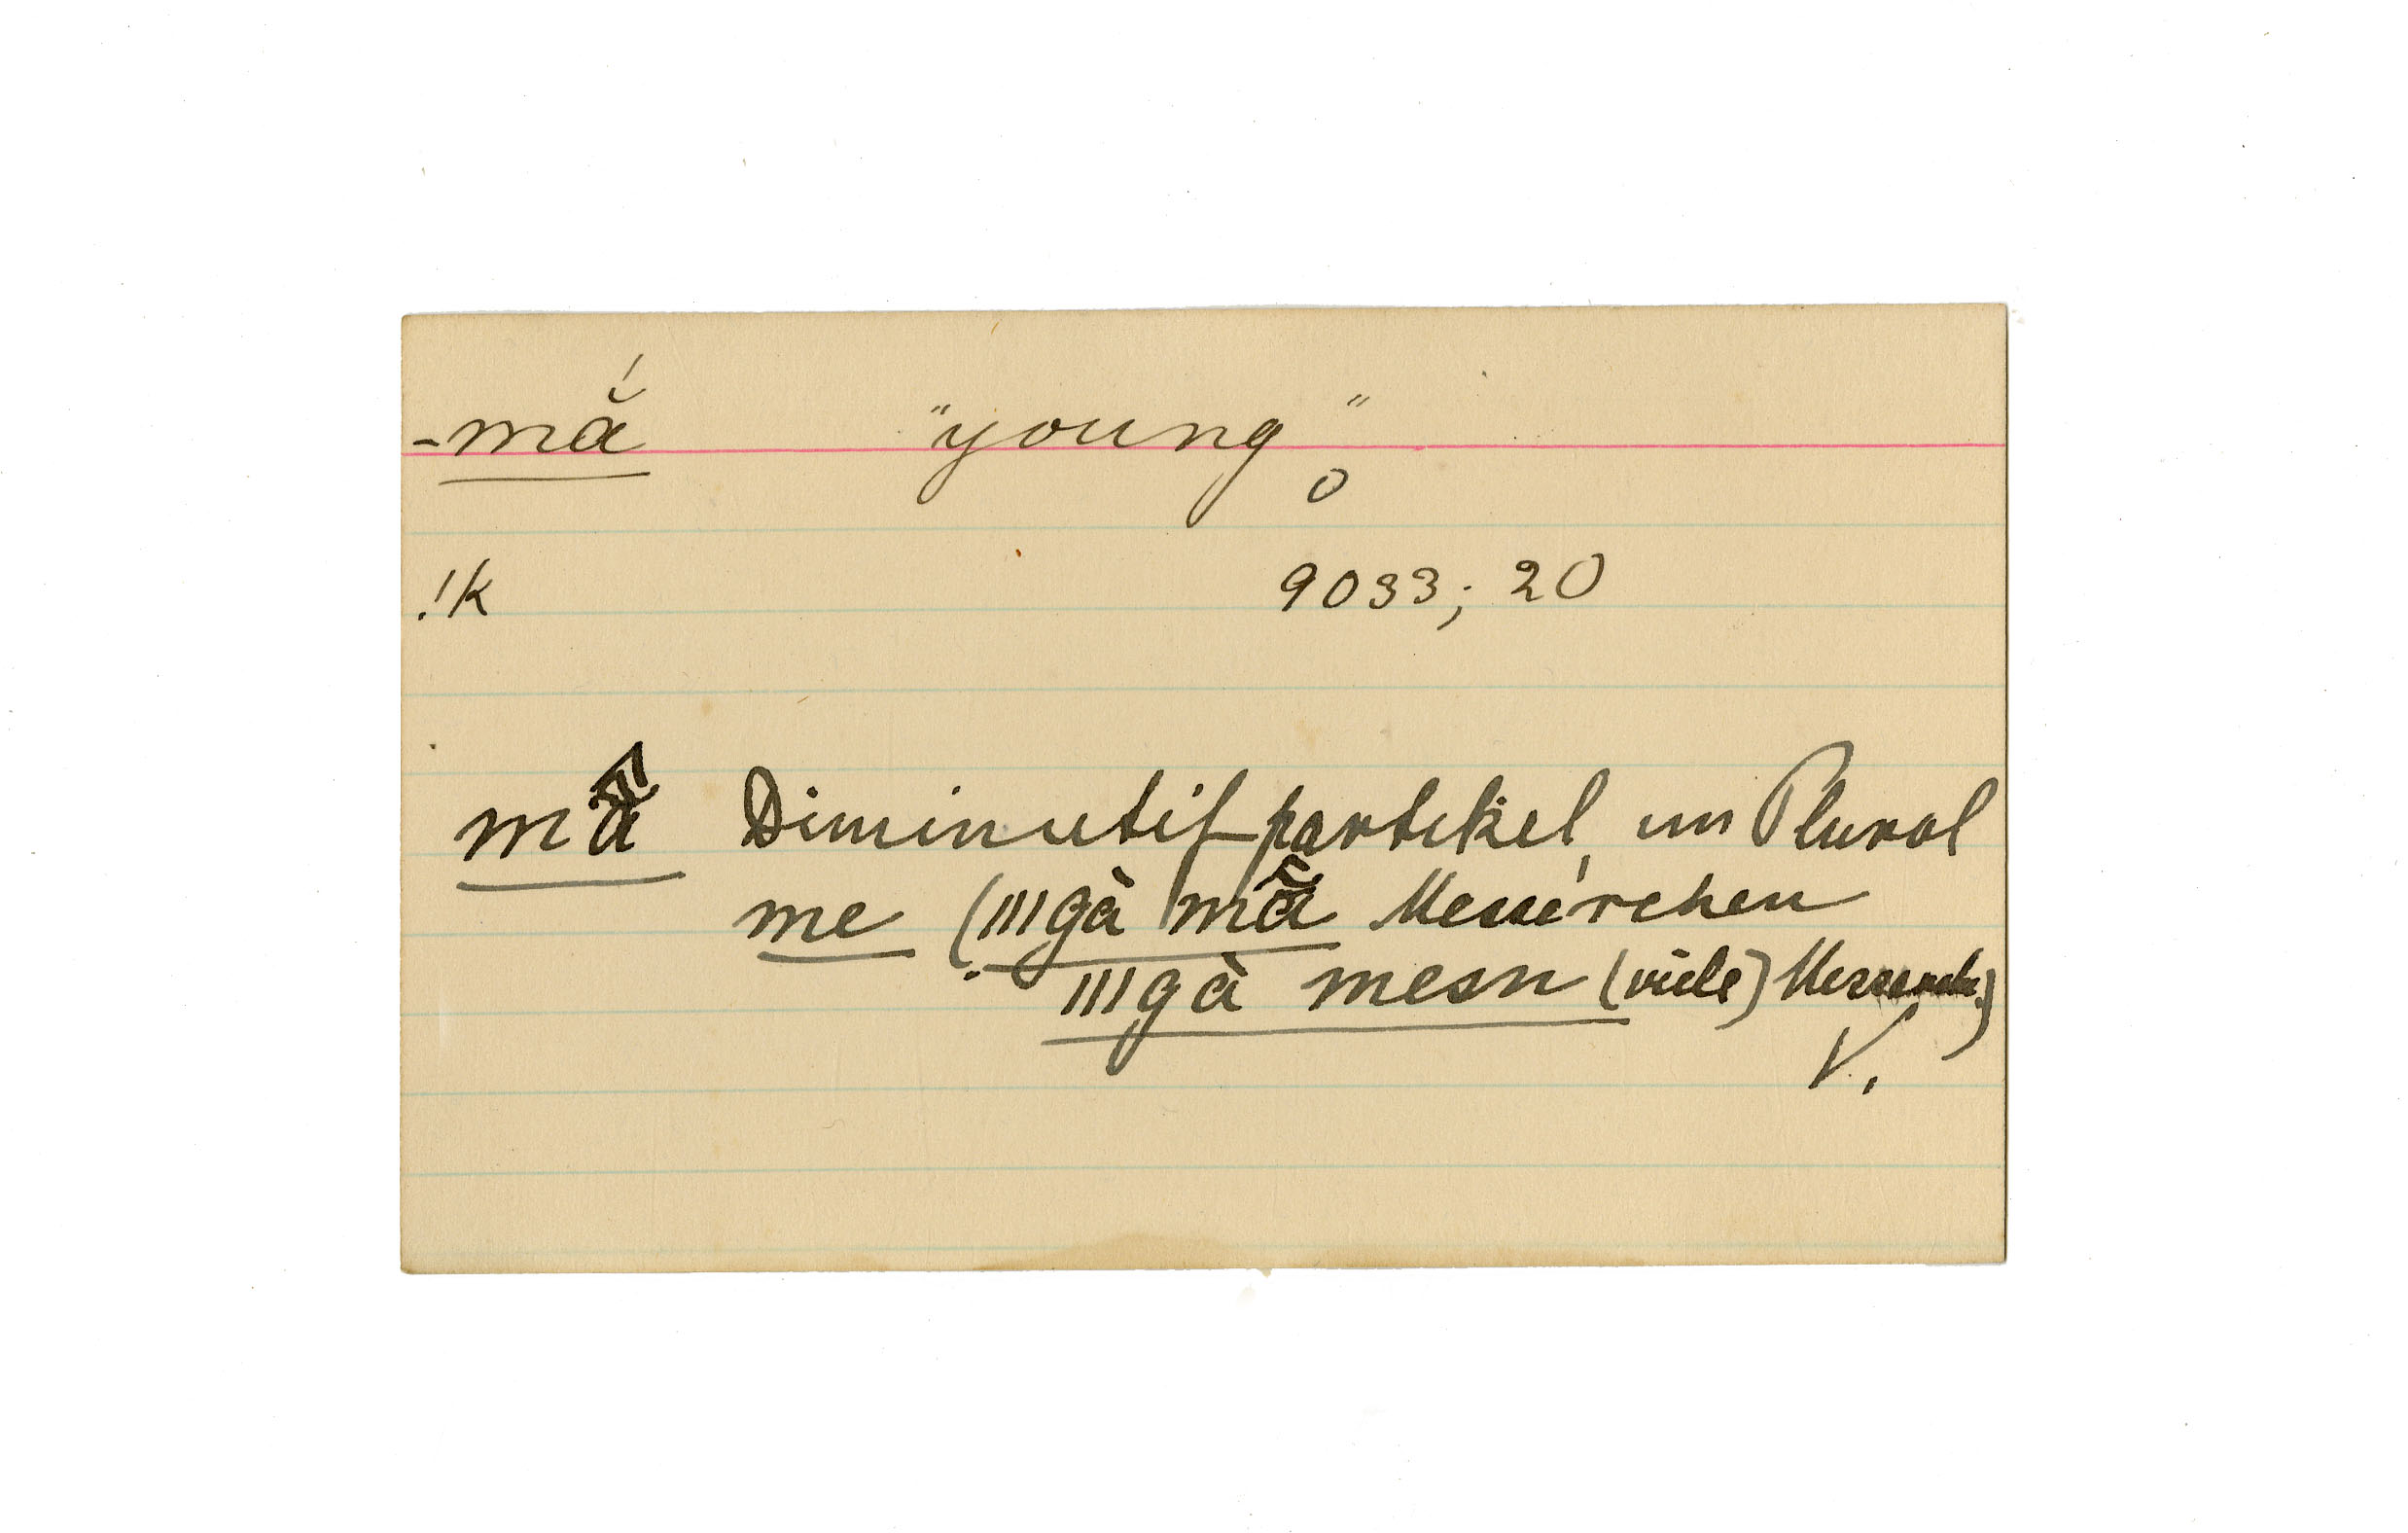 -mā̆́ "young"
0
!k 9033; 20
mã Diminutifpartikel, im Plural
me (|||gà mã Messerchen
|||gà mesn (viele) Messerch.)
V.